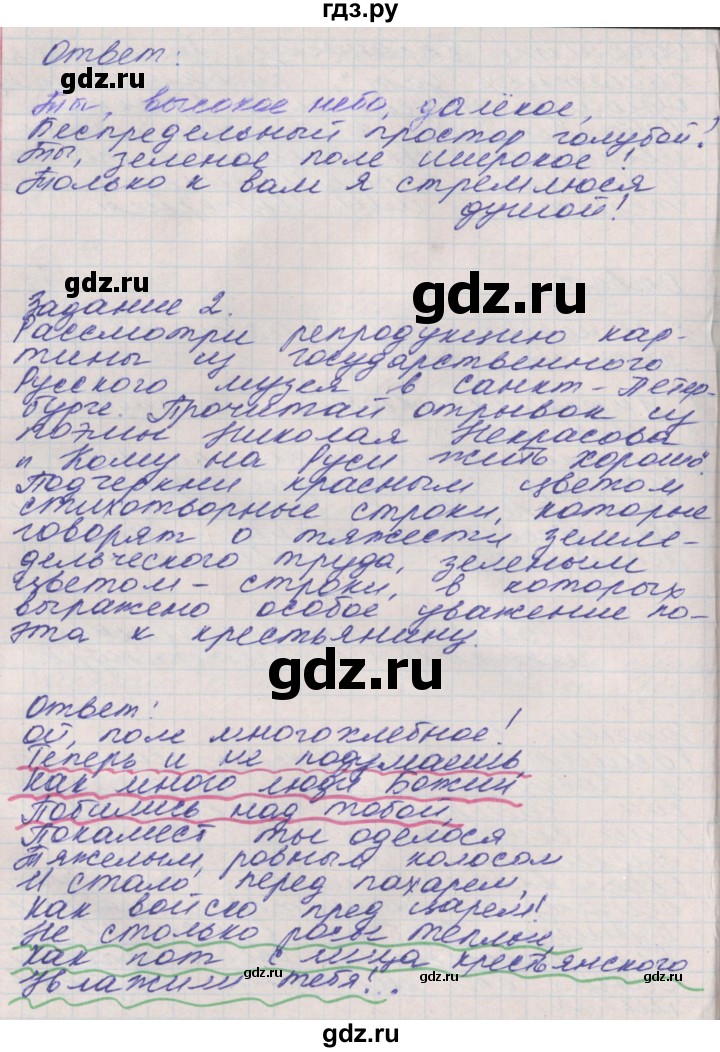 гдз.ру
Ответ:
Ты, высокое небо, далёкое,
Беспредельный простор голубой!
Ты, зеленое поле широкое!
Только к вам я стремлюся
душой!
gdz.ru
gdz.ru
Задание 2.
Рассмотри репродукцию кар-
тины из государственного
Русского музея в Санкт-Петер-
бурге. Прочитай отрывок из
поэмы Николая Некрасова
"Кому на Руси жить хорошо".
Подчеркни красным цветом
стихотворные строки, которые
говорят о тяжести земле-
дельческого труда, зеленым
цветом - строки, в которых
выражено особое уважение по-
эта к крестьянину.
gdz.ru
Ответ:
ой, поле многохлебное!
Теперь и не подумаешь
Как много люди Божии
Побились над тобой,
Покамест ты оделося
Тяжелым, ровным колосом
И стало перед пахарем,
Как войско пред царем!
Не столько росы теплые,
Как пот с лица крестьянского
Увлажили тебя!..
gdz.ru
gdz.ru
gdz.ru